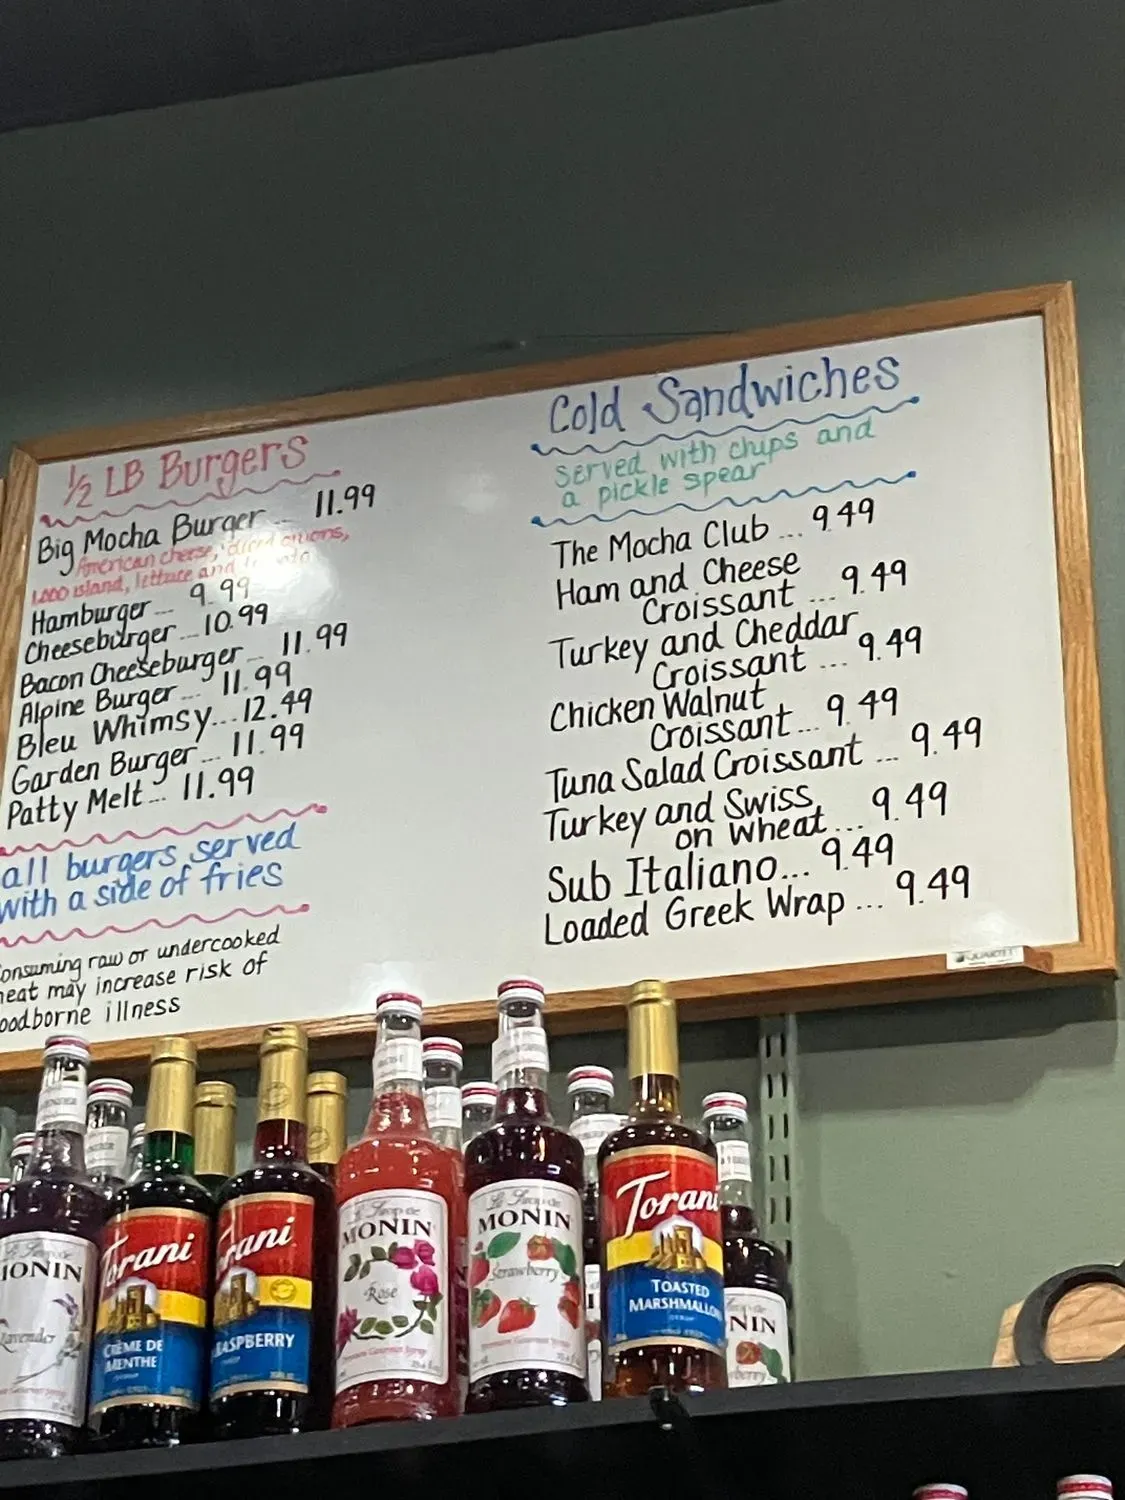 ½ LB Burgers
Big Mocha Burger ... 11.99
American cheese, diced onions,
1,000 island, lettuce and
Hamburger ... 9.99
Cheeseburger ... 10.99
Bacon Cheeseburger ... 11.99
Alpine Burger ... 11.99
Bleu Whimsy... 12.49
Garden Burger ... 11.99
Patty Melt ... 11.99
all burgers served
with a side of fries
onsuming raw or undercooked
eat may increase risk of
oodborne illness
Cold Sandwiches
served with chips and
a pickle spear
The Mocha Club ... 9.49
Ham and Cheese
Croissant ... 9.49
Turkey and Cheddar
Croissant ... 9.49
Chicken Walnut
Croissant ... 9.49
Tuna Salad Croissant ... 9.49
Turkey and Swiss
on Wheat ... 9.49
Sub Italiano... 9.49
Loaded Greek Wrap ... 9.49
QUARTET
MONIN
Lavender
Torani
CRÈME DE
MENTHE
Torani
RASPBERRY
Le Sirop de
MONIN
Rose
Premium Gourmet Syrup
Le Sirop de
MONIN
Strawberry
Premium Gourmet Syrup
Torani
TOASTED
MARSHMALLO
NIN